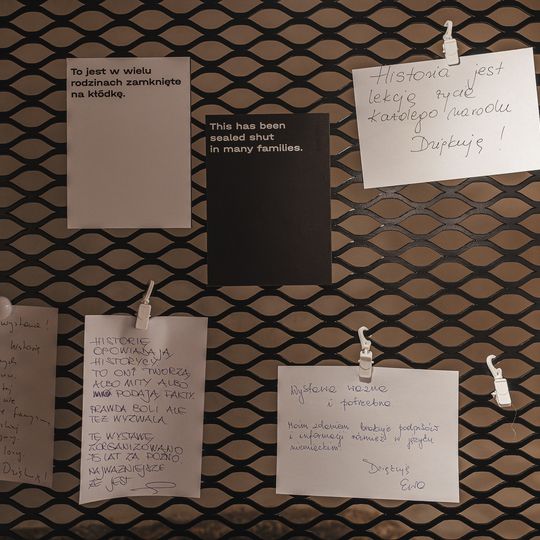 To jest w wielu
rodzinach zamknięte
na kłódkę.
This has been
sealed shut
in many families.
Historia jest
lekcją życia
każdego narodu
Dziękuję!
wystawa!
Historię
Dziękuję!
HISTORIĘ
OPOWIADAJĄ
HISTORYCY
TO ONI TWORZĄ
ALBO MITY ALBO
PODAJĄ FAKTY.
PRAWDA BOLI ALE
TEŻ WYZWALA.
TĘ WYSTAWĘ
ZORGANIZOWANO
25 LAT ZA PÓŹNO
NAJWAŻNIEJSZE
ŻE JEST
Wystawa ważna
i potrzebna
Moim zdaniem brakuje podpisów
i informacji również w języku
niemieckim.
Dziękuję
Ewa